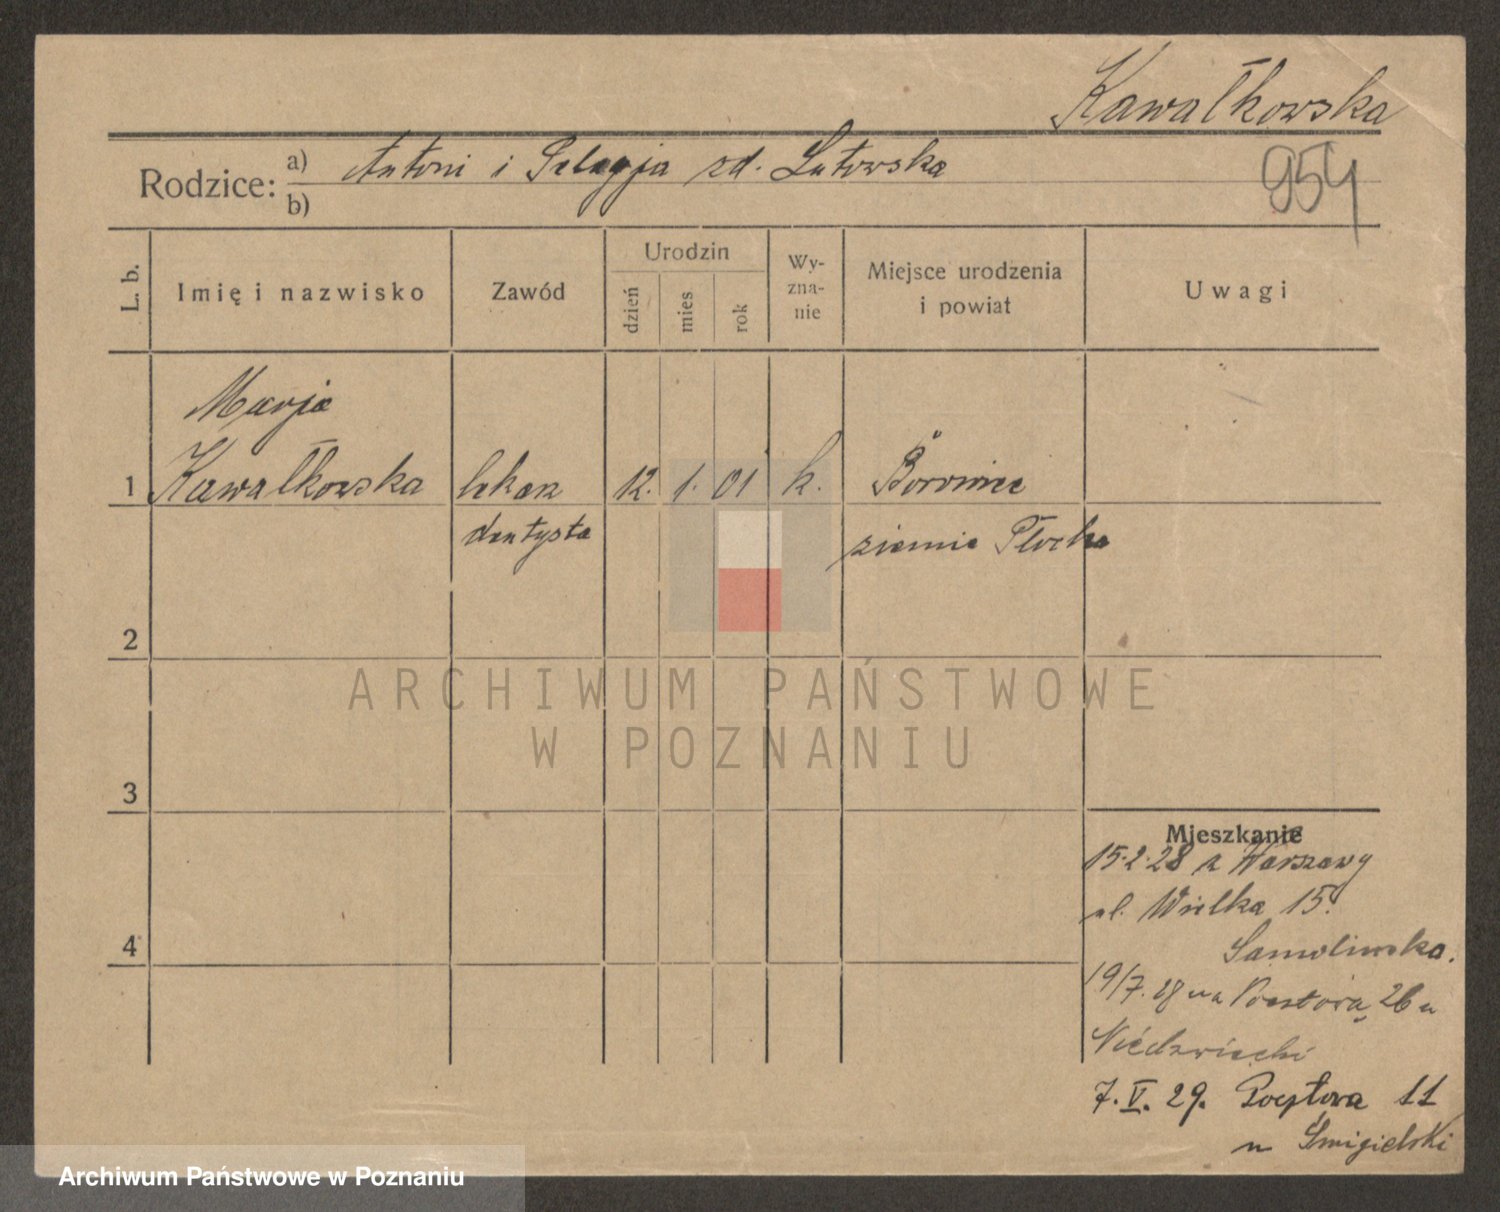 Kawałkowska
Rodzice: a) Antoni i Pelagja zd. Lutowska
b)
954
L. b.
Imię i nazwisko
Zawód
Urodzin
dzień
mies
rok
Wy-
zna-
nie
Miejsce urodzenia
i powiat
Uwagi
Marja
1 Kawałkowska lekarz 12. 1. 01 k. Borowice
dentysta ziemia Płocka
2
ARCHIWUM PAŃSTWOWE
W POZNANIU
3
4
Mieszkanie
15.2.28 z Warszawy
ul. Wielka 15.
19/7.28 na Pocztową 26 u
Niedzwiecki
7. V. 29. Pocztowa 11
u Śmigielski
Archiwum Państwowe w Poznaniu